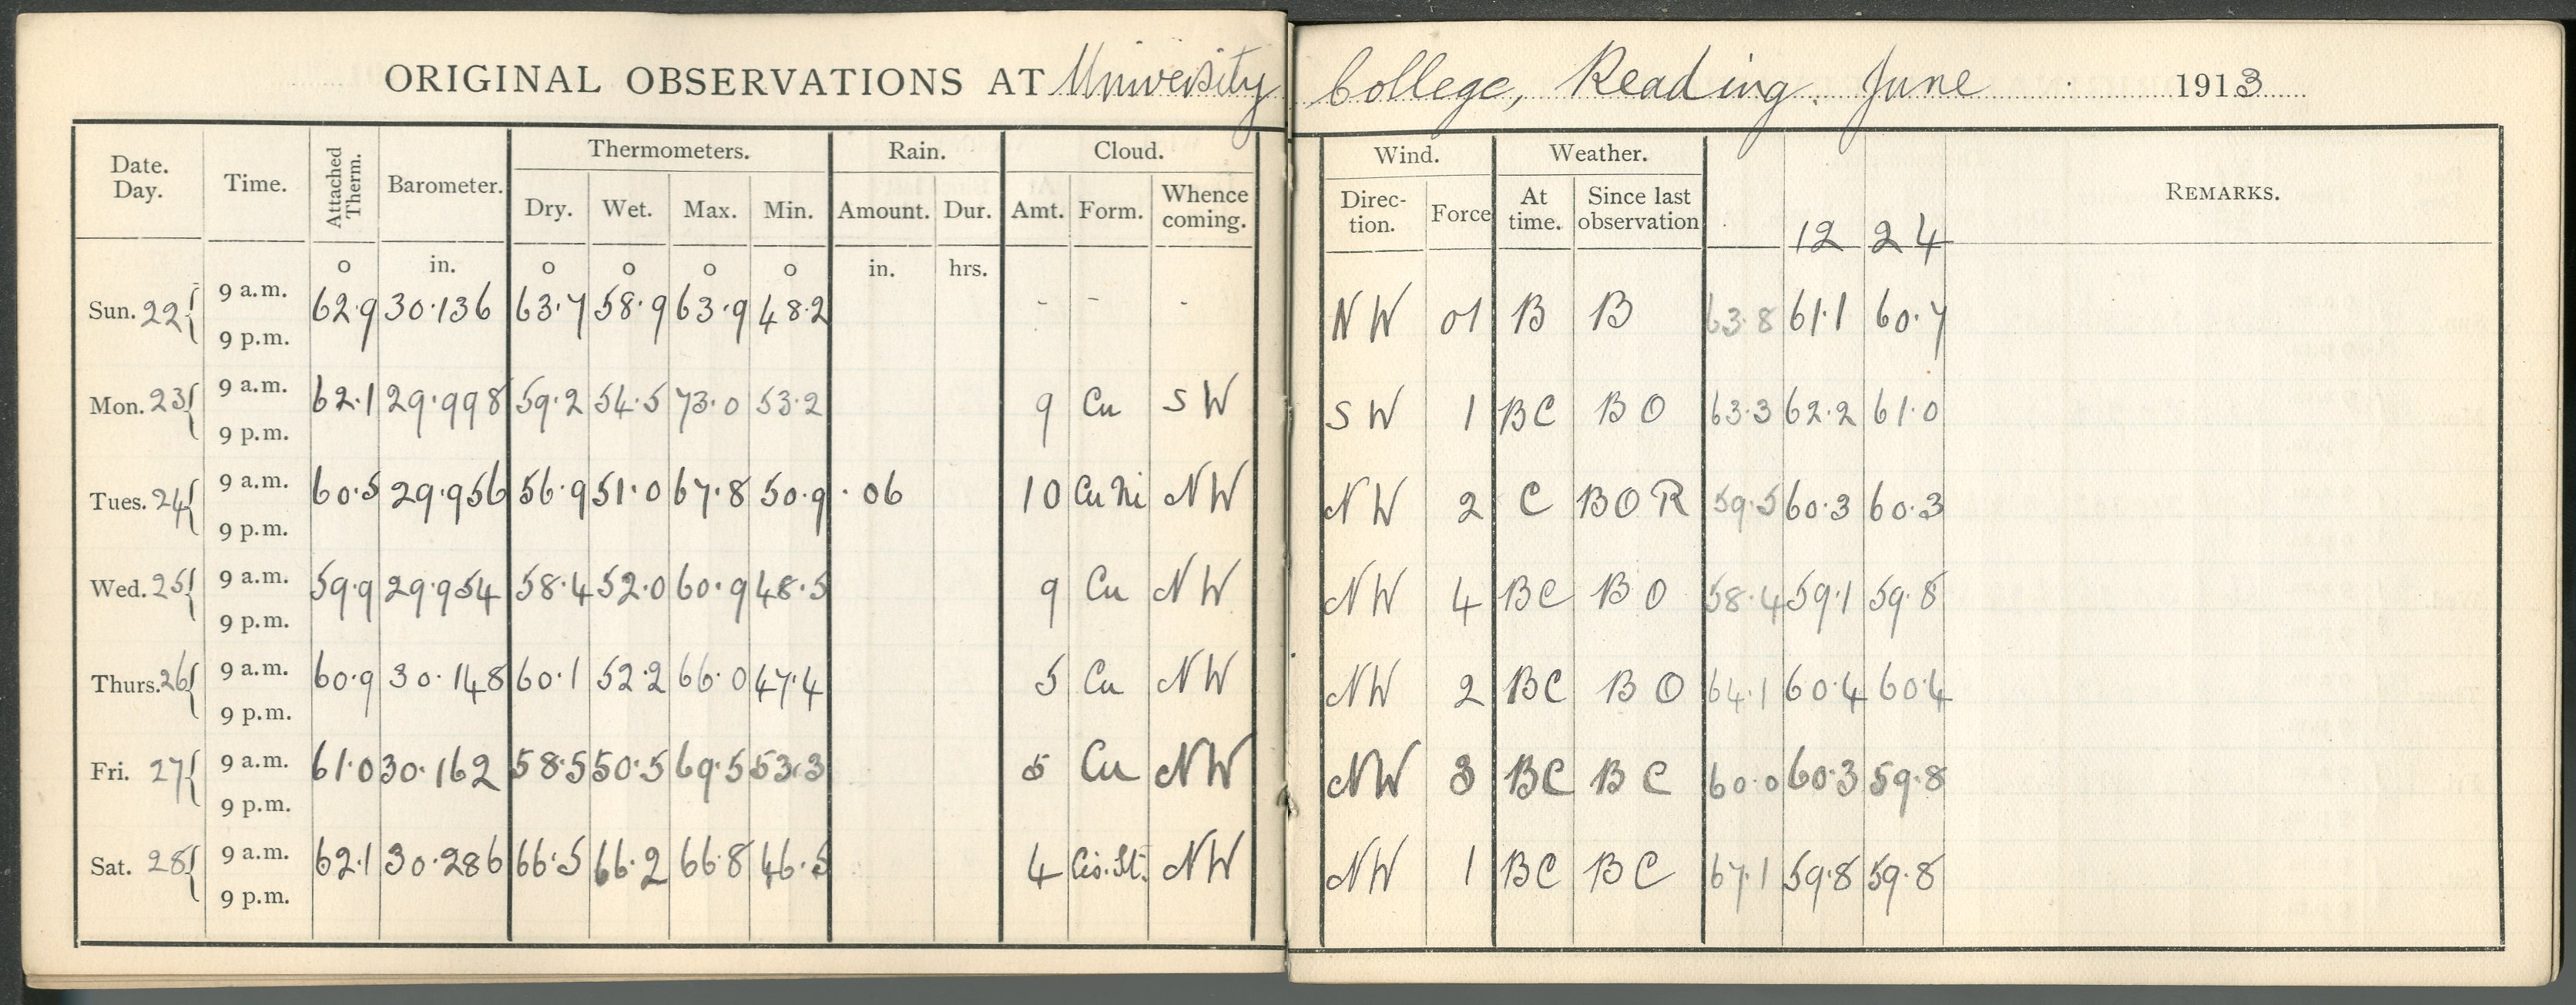 ORIGINAL OBSERVATIONS AT University College, Reading. June 1913
Date. Day. Time. Attached Therm. Barometer. Thermometers. Rain. Cloud. Wind. Weather. REMARKS.
Dry. Wet. Max. Min. Amount. Dur. Amt. Form. Whence coming. Direc-tion. Force At time. Since last observation 12 24
o in. o o o o in. hrs.
Sun. 22 9 a.m. 62.9 30.136 63.7 58.9 63.9 48.2 - - - NW 01 B B 63.8 61.1 60.7
9 p.m.
Mon. 23 9 a.m. 62.1 29.998 59.2 54.5 73.0 53.2 9 Cu SW SW 1 BC BO 63.3 62.2 61.0
9 p.m.
Tues. 24 9 a.m. 60.5 29.956 56.9 51.0 67.8 50.9 .06 10 Cu Ni NW NW 2 C BOR 59.5 60.3 60.3
9 p.m.
Wed. 25 9 a.m. 59.9 29.954 58.4 52.0 60.9 48.5 9 Cu NW NW 4 BC BO 58.4 59.1 59.8
9 p.m.
Thurs. 26 9 a.m. 60.9 30.148 60.1 52.2 66.0 47.4 5 Cu NW NW 2 BC BO 64.1 60.4 60.4
9 p.m.
Fri. 27 9 a.m. 61.0 30.162 58.5 50.5 69.5 53.3 5 Cu NW NW 3 BC BC 60.0 60.3 59.8
9 p.m.
Sat. 28 9 a.m. 62.1 30.286 66.5 66.2 66.8 46.5 4 NW NW 1 BC BC 67.1 59.8 59.8
9 p.m.